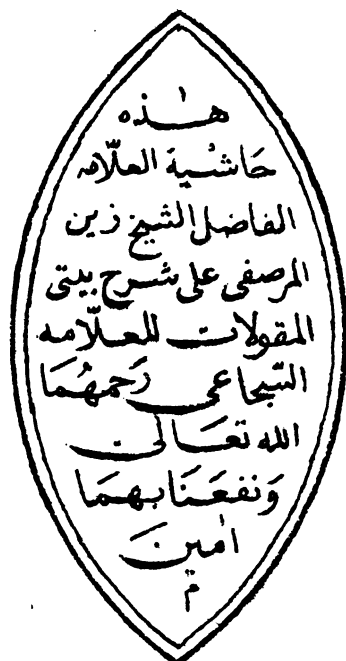 هٰذه
حَاشْية العلّامه
الفاضل الشيخ زين
المرصفى على شرح بيتى
المقولات للعلّامه
السّجاعى رَحمهُمَا
الله تعَالى
وَنفعَنَا بهمَا
اٰمينَ
م